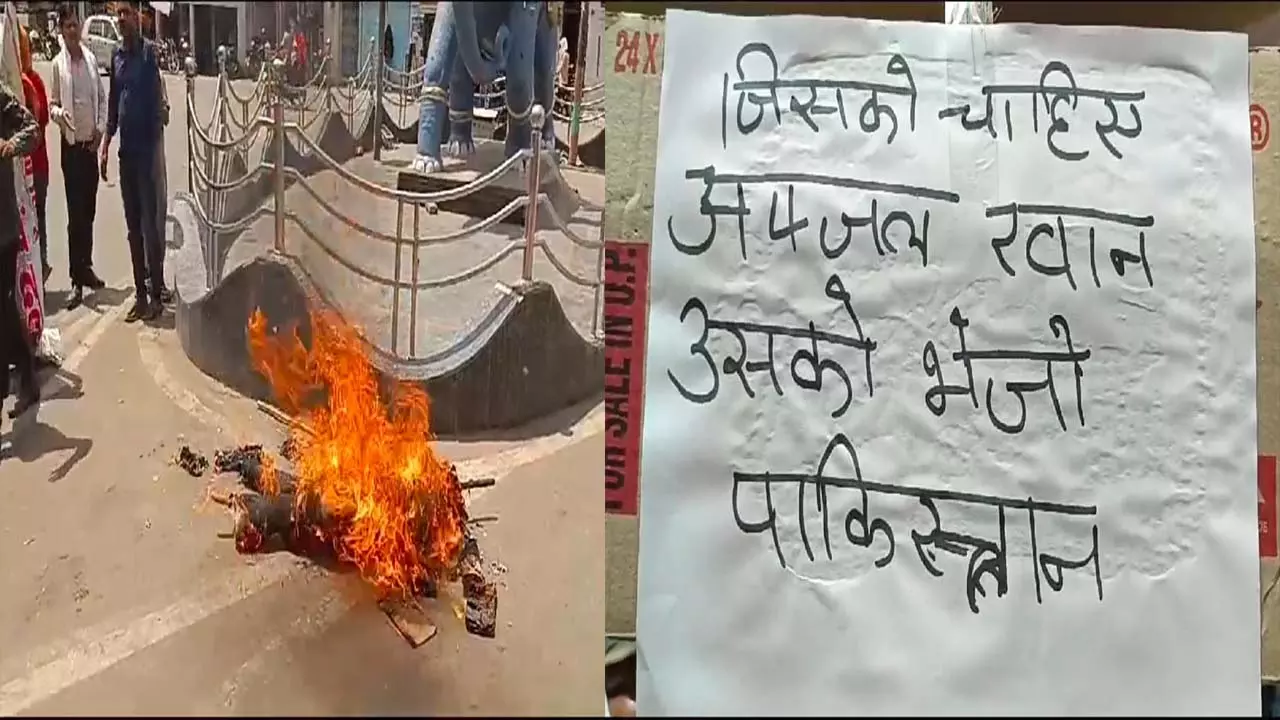 24 X
®
जिसको चाहिस
अफजल खान
उसको भेजो
पाकिस्तान
FOR SALE IN U.P.